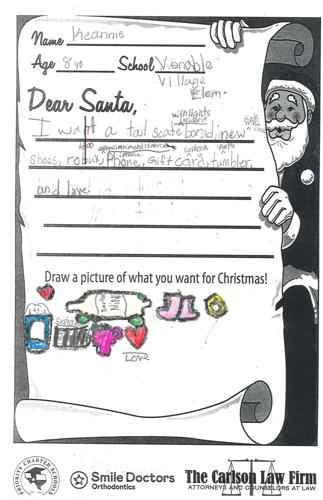 Name Keannie
Age 8 yo School Venable
Village
Elem.
Dear Santa,
with lights
I want a tail scateborad, new
shoes, robux, Phone, Gift card, tumbler,
and love
Draw a picture of what you want for Christmas!
LOVE
PRIORITY CHARTER SCHOOLS
Smile Doctors
Orthodontics
The Carlson Law Firm
ATTORNEYS AND COUNSELORS AT LAW